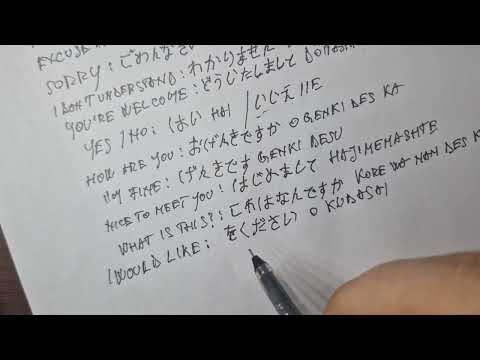 EXCUSE
SORRY : ごめんなさい
I DON'T UNDERSTAND : わかりません
YOU'RE WELCOME : どういたしまして DOITASHI
YES / NO : はい HAI / いいえ IIE
HOW ARE YOU : おげんきですか O GENKI DES KA
I'M FINE : げんきです GENKI DESU
NICE TO MEET YOU : はじめまして HAJIMEMASHTE
WHAT IS THIS? : これはなんですか KORE WA NAN DES K
I WOULD LIKE : をください O KUDASAI